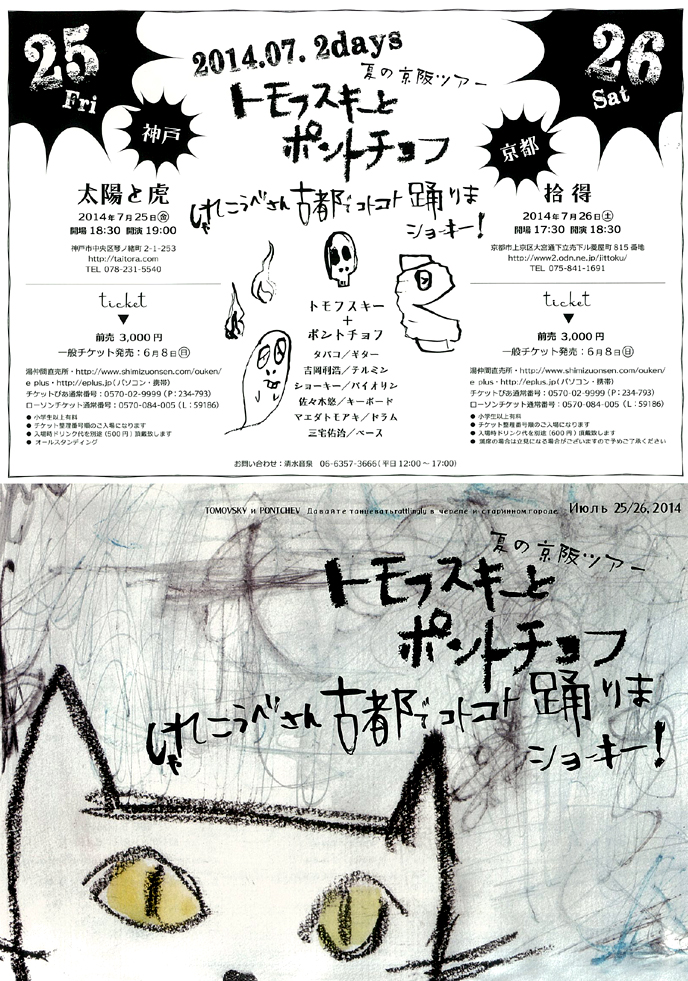 25
Fri
神戸
2014.07. 2days
夏の京阪ツアー
トモフスキーと
ポントチョフ
しゃれこうべさん 古都でコトコト 踊りま
ショーキー!
26
Sat
京都
太陽と虎
2014年7月25日㊎
開場 18:30 開演 19:00
神戸市中央区琴ノ緒町 2-1-253
http://taitora.com
TEL 078-231-5540
ticket
▼
前売 3,000 円
一般チケット発売：6月8日㊐
湯仲間直売所・http://www.shimizuonsen.com/ouken/
e plus・http://eplus.jp (パソコン・携帯)
チケットぴあ通常番号：0570-02-9999 (P：234-793)
ローソンチケット通常番号：0570-084-005 (L：59186)
● 小学生以上有料
● チケット整理番号順のご入場になります
● 入場時ドリンク代を別途 (500 円) 頂戴致します
● オールスタンディング
トモフスキー
+
ポントチョフ
タバコ／ギター
吉岡利浩／テルミン
ショーキー／バイオリン
佐々木悠／キーボード
マエダトモアキ／ドラム
三宅佑治／ベース
拾得
2014年7月26日㊏
開場 17:30 開演 18:30
京都市上京区大宮通下立売下ル菱屋町 815 番地
http://www2.odn.ne.jp/jittoku/
TEL 075-841-1691
ticket
▼
前売 3,000 円
一般チケット発売：6月8日㊐
湯仲間直売所・http://www.shimizuonsen.com/ouken/
e plus・http://eplus.jp (パソコン・携帯)
チケットぴあ通常番号：0570-02-9999 (P：234-793)
ローソンチケット通常番号：0570-084-005 (L：59186)
● 小学生以上有料
● チケット整理番号順のご入場になります
● 入場時ドリンク代を別途 (600 円) 頂戴致します
● 満席の場合は立見になる場合がございますので予めご了承ください
お問い合わせ：清水音泉 06-6357-3666 (平日 12:00 ～ 17:00)
TOMOVSKY и PONTCHEV Давайте танцеватьrattlingly в черепе и старинном городе Июль 25/26, 2014
夏の京阪ツアー
トモフスキーと
ポントチョフ
しゃれこうべさん 古都でコトコト 踊りま
ショーキー!